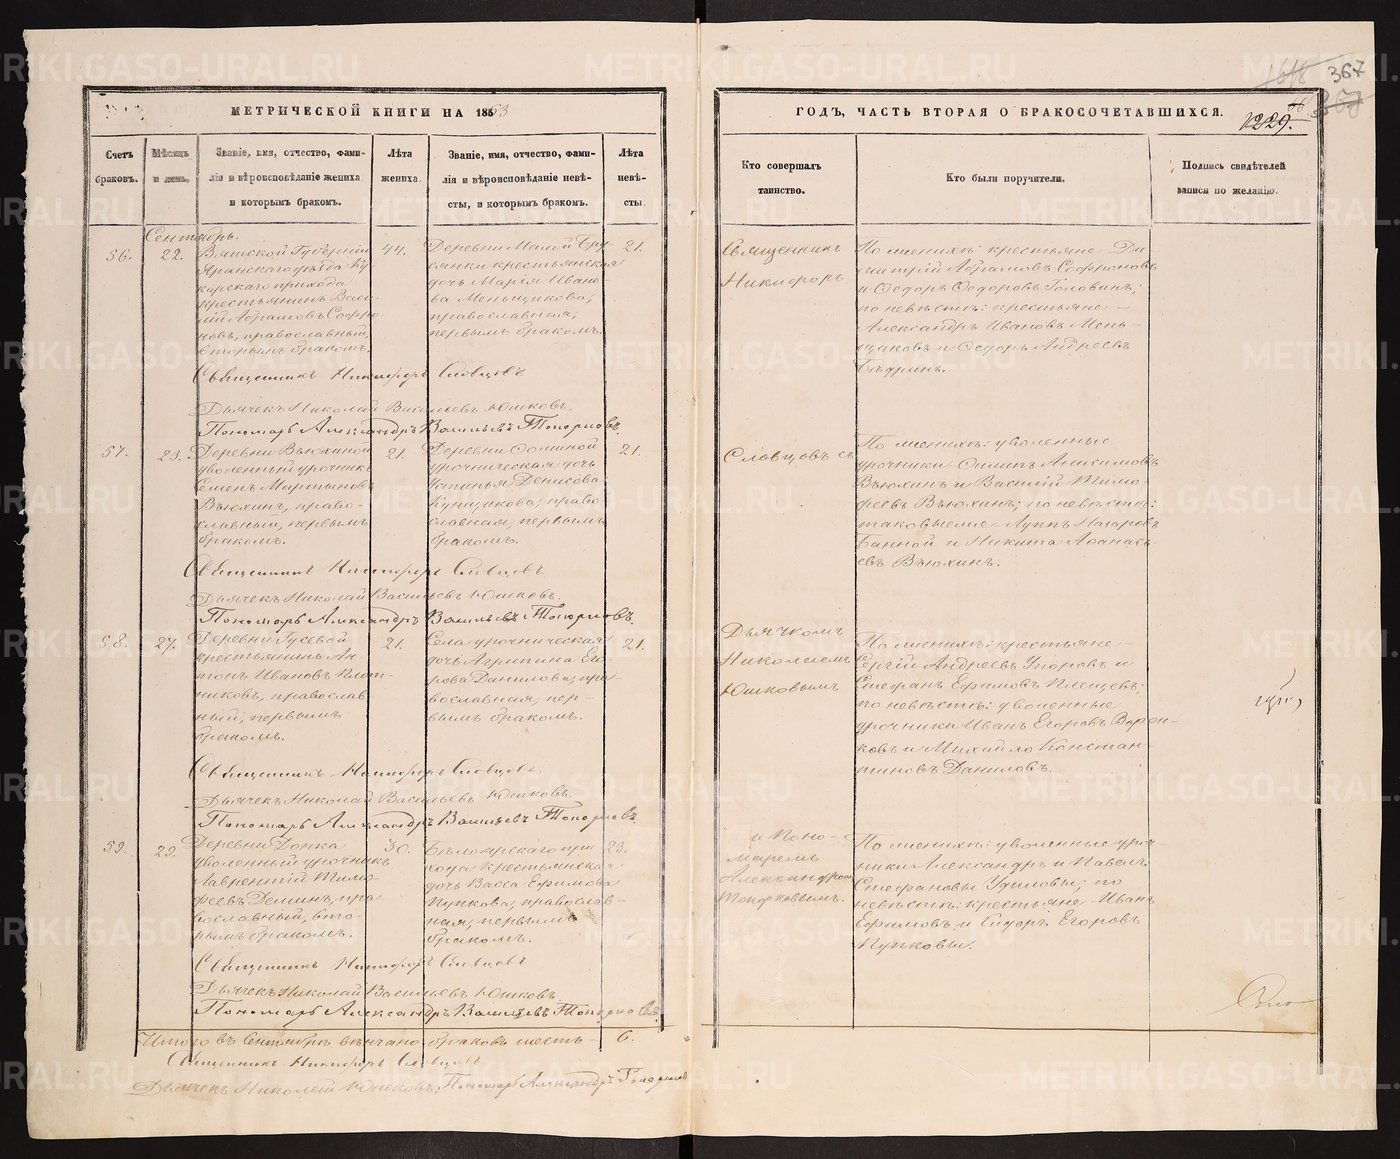 МЕТРИЧЕСКОЙ КНИГИ НА 1863
Счетъ браковъ.
Мѣсяцъ и день.
Званіе, имя, отчество, фами-
лія и вѣроисповѣданіе жениха
и которымъ бракомъ.
Лѣта жениха.
Званіе, имя, отчество, фами-
лія и вѣроисповѣданіе невѣ-
сты, и которымъ бракомъ.
Лѣта невѣ-
сты.
Сентябрь.
56.
22.
Вятской Губерніи
Яранскаго уѣзда Ку
прихода
крестьянинъ Васи
лій Абрамовъ Софро
новъ, православный,
вторымъ бракомъ.
44.
Деревни Малой Бру
сянки крестьянская
дочь Марія Ивано
ва Меньщикова,
православная,
первымъ бракомъ.
21.
Священникъ Никифоръ Словцовъ
Дьячекъ Николай Васильевъ Юшковъ.
Пономарь Александръ Васильевъ Топорковъ.
57.
23.
Деревни Вьюхиной
уволенный урочникъ
Семенъ Мартыновъ
Вьюхинъ, право-
славный, первымъ
бракомъ.
21.
Деревни
урочническая дочь
Устинья Денисова
православная, первымъ
бракомъ.
21.
Священникъ Никифоръ Словцовъ
Дьячекъ Николай Васильевъ Юшковъ.
Пономарь Александръ Васильевъ Топорковъ.
58.
27.
Деревни Гусевой
крестьянинъ Ан-
тонъ Ивановъ Плот-
никовъ, православ
ный, первымъ
бракомъ.
21.
Села урочническая
дочь Агрипина Его
рова Данилова, пра-
вославная, пер-
вымъ бракомъ.
21.
Священникъ Никифоръ Словцовъ.
Дьячекъ Николай Васильевъ Юшковъ.
Пономарь Александръ Васильевъ Топорковъ
59.
29.
Деревни
уволенный урочникъ
Лаврентій Тимо
феевъ Деминъ, пра
вославный, вто-
рымъ бракомъ.
30.
Бѣлоярскаго при
хода крестьянская
дочь Васса Ефимова
Пупкова, православ-
ная, первымъ
бракомъ.
23.
Священникъ Никифоръ Словцовъ
Дьячекъ Николай Васильевъ Юшковъ.
Пономарь Александръ Васильевъ Топорковъ
Итого въ Сентябрѣ вѣнчано браковъ шесть - 6.
Священникъ Никифоръ Словцовъ
Дьячекъ Николай Юшковъ, Пономарь Александръ Топорковъ
367
1229.
ГОДЪ, ЧАСТЬ ВТОРАЯ О БРАКОСОЧЕТАВШИХСЯ.
Кто совершалъ
таинство.
Кто были поручители.
Подпись свидѣтелей
записи по желанію.
Священникъ
Никифоръ
По женихѣ: крестьяне Ди
митрій Абрамовъ Софроновъ
и Ѳедоръ Ѳедоровъ Головинъ;
по невѣстѣ: крестьяне -
Александръ Ивановъ Мень-
щиковъ и Ѳедоръ Андреевъ
Бѣдринъ.
Словцовъ съ
По женихѣ: уволенные
урочники Анисимовъ
Вьюхинъ и Василій Тимо
феевъ Вьюхинъ; по невѣстѣ:
таковыеже - Назаровъ
и Никита Афанась-
евъ Вьюхинъ.
Дьячкомъ
Николаемъ
Юшковымъ
По женихѣ: крестьяне -
Сергій Андреевъ Упоровъ и
Стефанъ Ефимовъ Плещевъ;
по невѣстѣ: уволенные
урочники Иванъ Егоровъ Ворон-
ковъ и Михайло Констан-
тиновъ Даниловъ.
и Поно-
маремъ
Александромъ
Топорковымъ.
По женихѣ: уволенные уроч-
ники Александръ и Павелъ
Стефановы по
невѣстѣ: крестьяне - Иванъ
Ефимовъ и Сидоръ Егоровъ
Пупковы.
METRIKI.GASO-URAL.RU